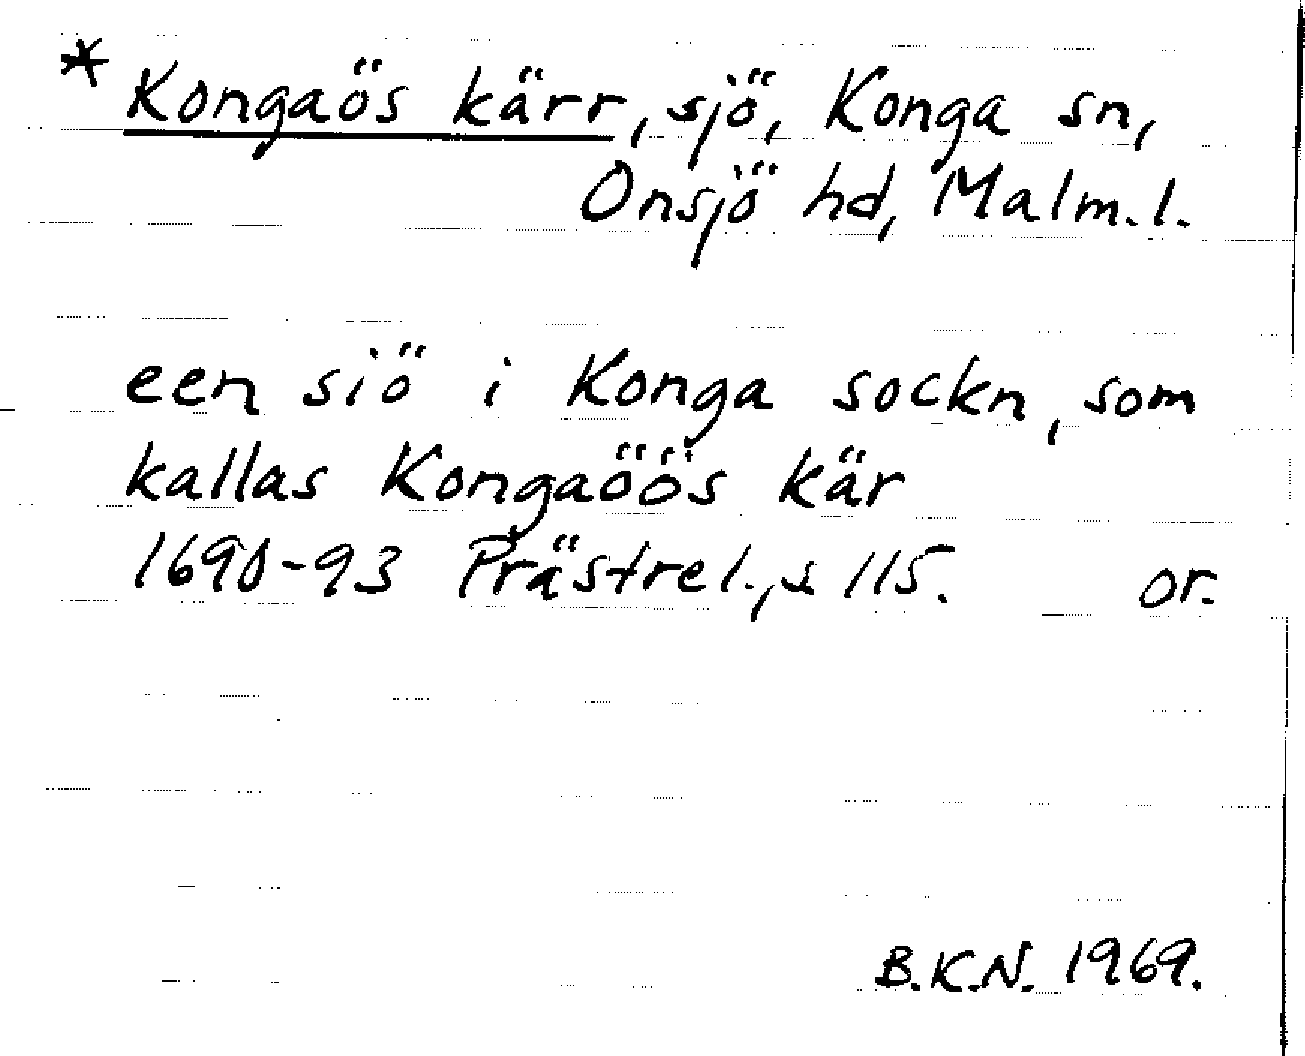 * Kongaös kärr, sjö, Konga sn,
Onsjö hd, Malm.l.
een siö i Konga sockn, som
kallas Kongaöös kär
1690-93 Prästrel., s 115. or.
B.K.N. 1969.